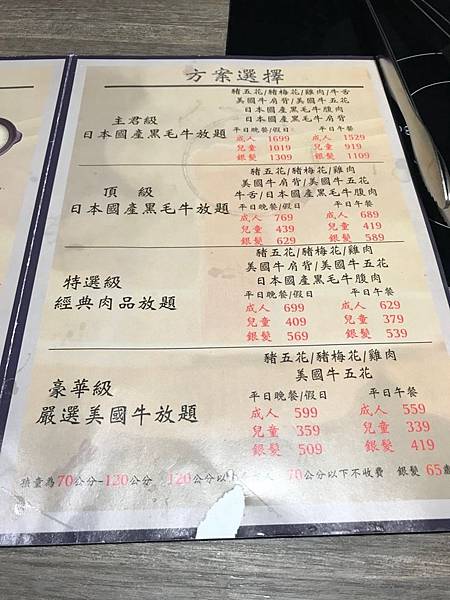 方案選擇
豬五花/豬梅花/雞肉/牛舌
美國牛肩背/美國牛五花
日本國產黑毛牛腹肉
日本國產黑毛牛肩背
主君級
日本國產黑毛牛放題
平日晚餐/假日 平日午餐
成人 1699 成人 1529
兒童 1019 兒童 919
銀髮 1309 銀髮 1109
豬五花/豬梅花/雞肉
美國牛肩背/美國牛五花
牛舌/日本國產黑毛牛腹肉
頂 級
日本國產黑毛牛放題
平日晚餐/假日 平日午餐
成人 769 成人 689
兒童 439 兒童 419
銀髮 629 銀髮 589
豬五花/豬梅花/雞肉
美國牛肩背/美國牛五花
日本國產黑毛牛腹肉
特選級
經典肉品放題
平日晚餐/假日 平日午餐
成人 699 成人 629
兒童 409 兒童 379
銀髮 569 銀髮 539
豬五花/豬梅花/雞肉
美國牛五花
豪華級
嚴選美國牛放題
平日晚餐/假日 平日午餐
成人 599 成人 559
兒童 359 兒童 339
銀髮 509 銀髮 419
孩童為70公分-120公分 120公分以 70公分以下不收費 銀髮 65歲